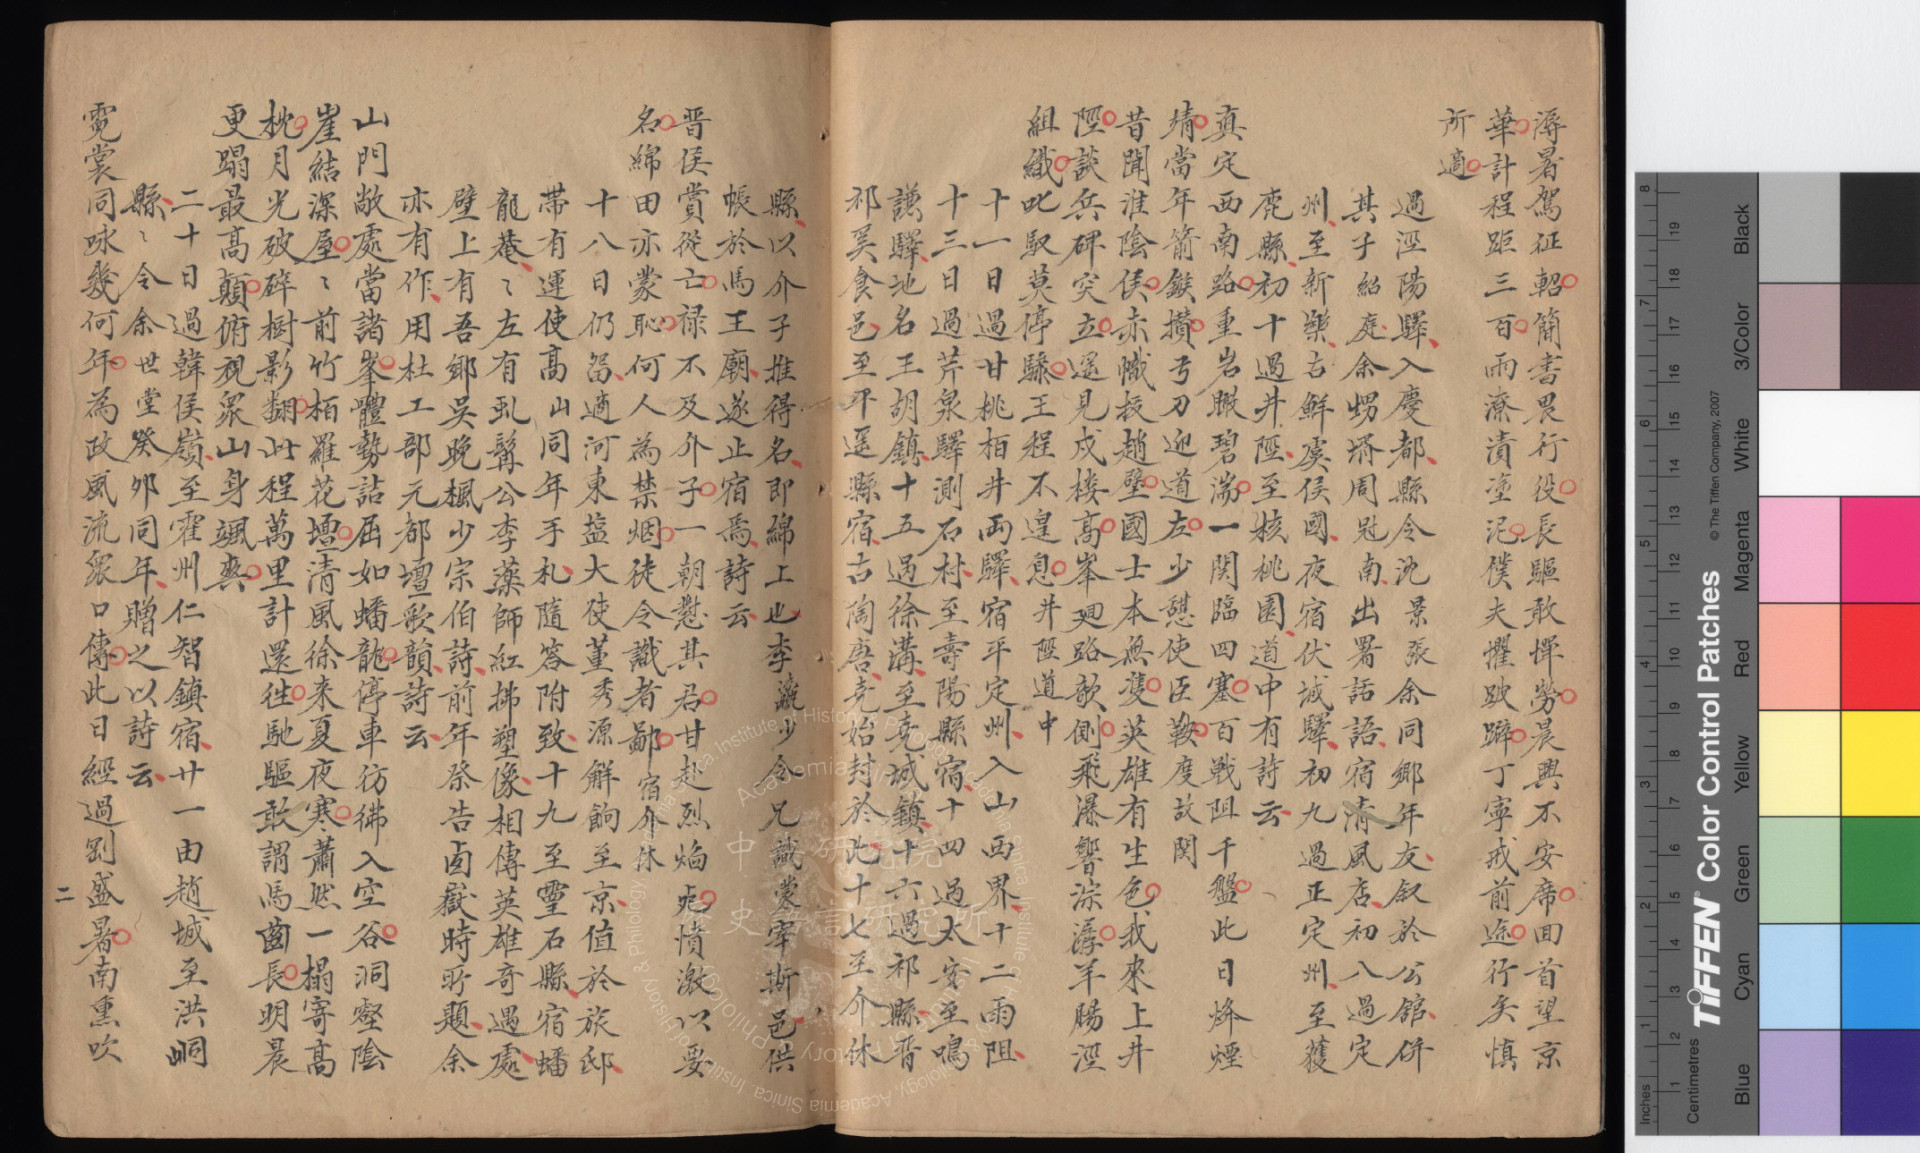 溽暑駕征軺簡書畏行役長驅敢憚勞晨興不安席回首望京
華計程距三百雨潦漬塗泥僕夫懼跛躃丁寧戒前途行矣慎
所適
過涇陽驛入慶都縣令沈景張余同鄉年友叙於公舘併
其子紹庭余甥壻周冠南出署話語宿清風店初八過定
州至新樂古鮮虞侯國夜宿伏城驛初九過正定州至獲
鹿縣初十過井陘至核桃園道中有詩云
真定西南路重岩瞰碧湍一関臨四塞百戦阻千盤此日烽煙
靖當年箭鏃攢弓刀迎道左少憇使臣鞍度故関
昔聞淮陰侯赤幟拔趙壁國士本無雙英雄有生色我來上井
陘談兵碑突立遥見戍楼高峯廻路欹側飛瀑響淙潺羊腸涇
組織叱馭莫停驂王程不遑息井陘道中
十一日過甘桃柏井両驛宿平定州入山西界十二雨阻
十三日過芹泉驛測石村至壽陽縣宿十四過太安至鳴
謙驛地名王胡鎮十五過徐溝至堯城鎮十六過祁縣晋
祁奚食邑至平遥縣宿古陶唐堯始封於此十七至介休
縣以介子推得名即綿上也李瀛少令兄識蒙宰斯邑供
帳於馬王廟遂止宿焉詩云
晋侯賞從亡禄不及介子一朝懟其君甘赴烈焔死憤激以要
名綿田亦蒙恥何人為禁烟徒令識者鄙宿介休
十八日仍畱適河東塩大使董秀源解餉至京值於旅邸
帯有運使髙山同年手札隨答附致十九至霊石縣宿蟠
龍菴〻左有虬髯公李藥師紅拂塑像相傳英雄奇遇處
壁上有吾鄉吳晚楓少宗伯詩前年祭告鹵嶽時所題余
亦有作用杜工部元都壇歌韻詩云
山門敞處當諸峯體勢詰屈如蟠龍停車彷彿入空谷洞壑陰
崖結深屋〻前竹栢羅花壇清風徐来夏夜寒蕭然一榻寄高
枕月光破碎樹影翻此程萬里計還往馳驅敢謂馬齒長明晨
更躡最髙顛俯視衆山身颯爽
二十日過韓侯嶺至霍州仁智鎮宿廿一由趙城至洪峒
縣〻令余世堂癸夘同年贈之以詩云
霓裳同咏幾何年為政風流衆口傳此日經過劉盛暑南熏吹
二
中央研究院
歷史語言研究所
Inches
Centimetres
TIFFEN Color Control Patches
© The Tiffen Company, 2007
Blue
Cyan
Green
Yellow
Red
Magenta
White
3/Color
Black